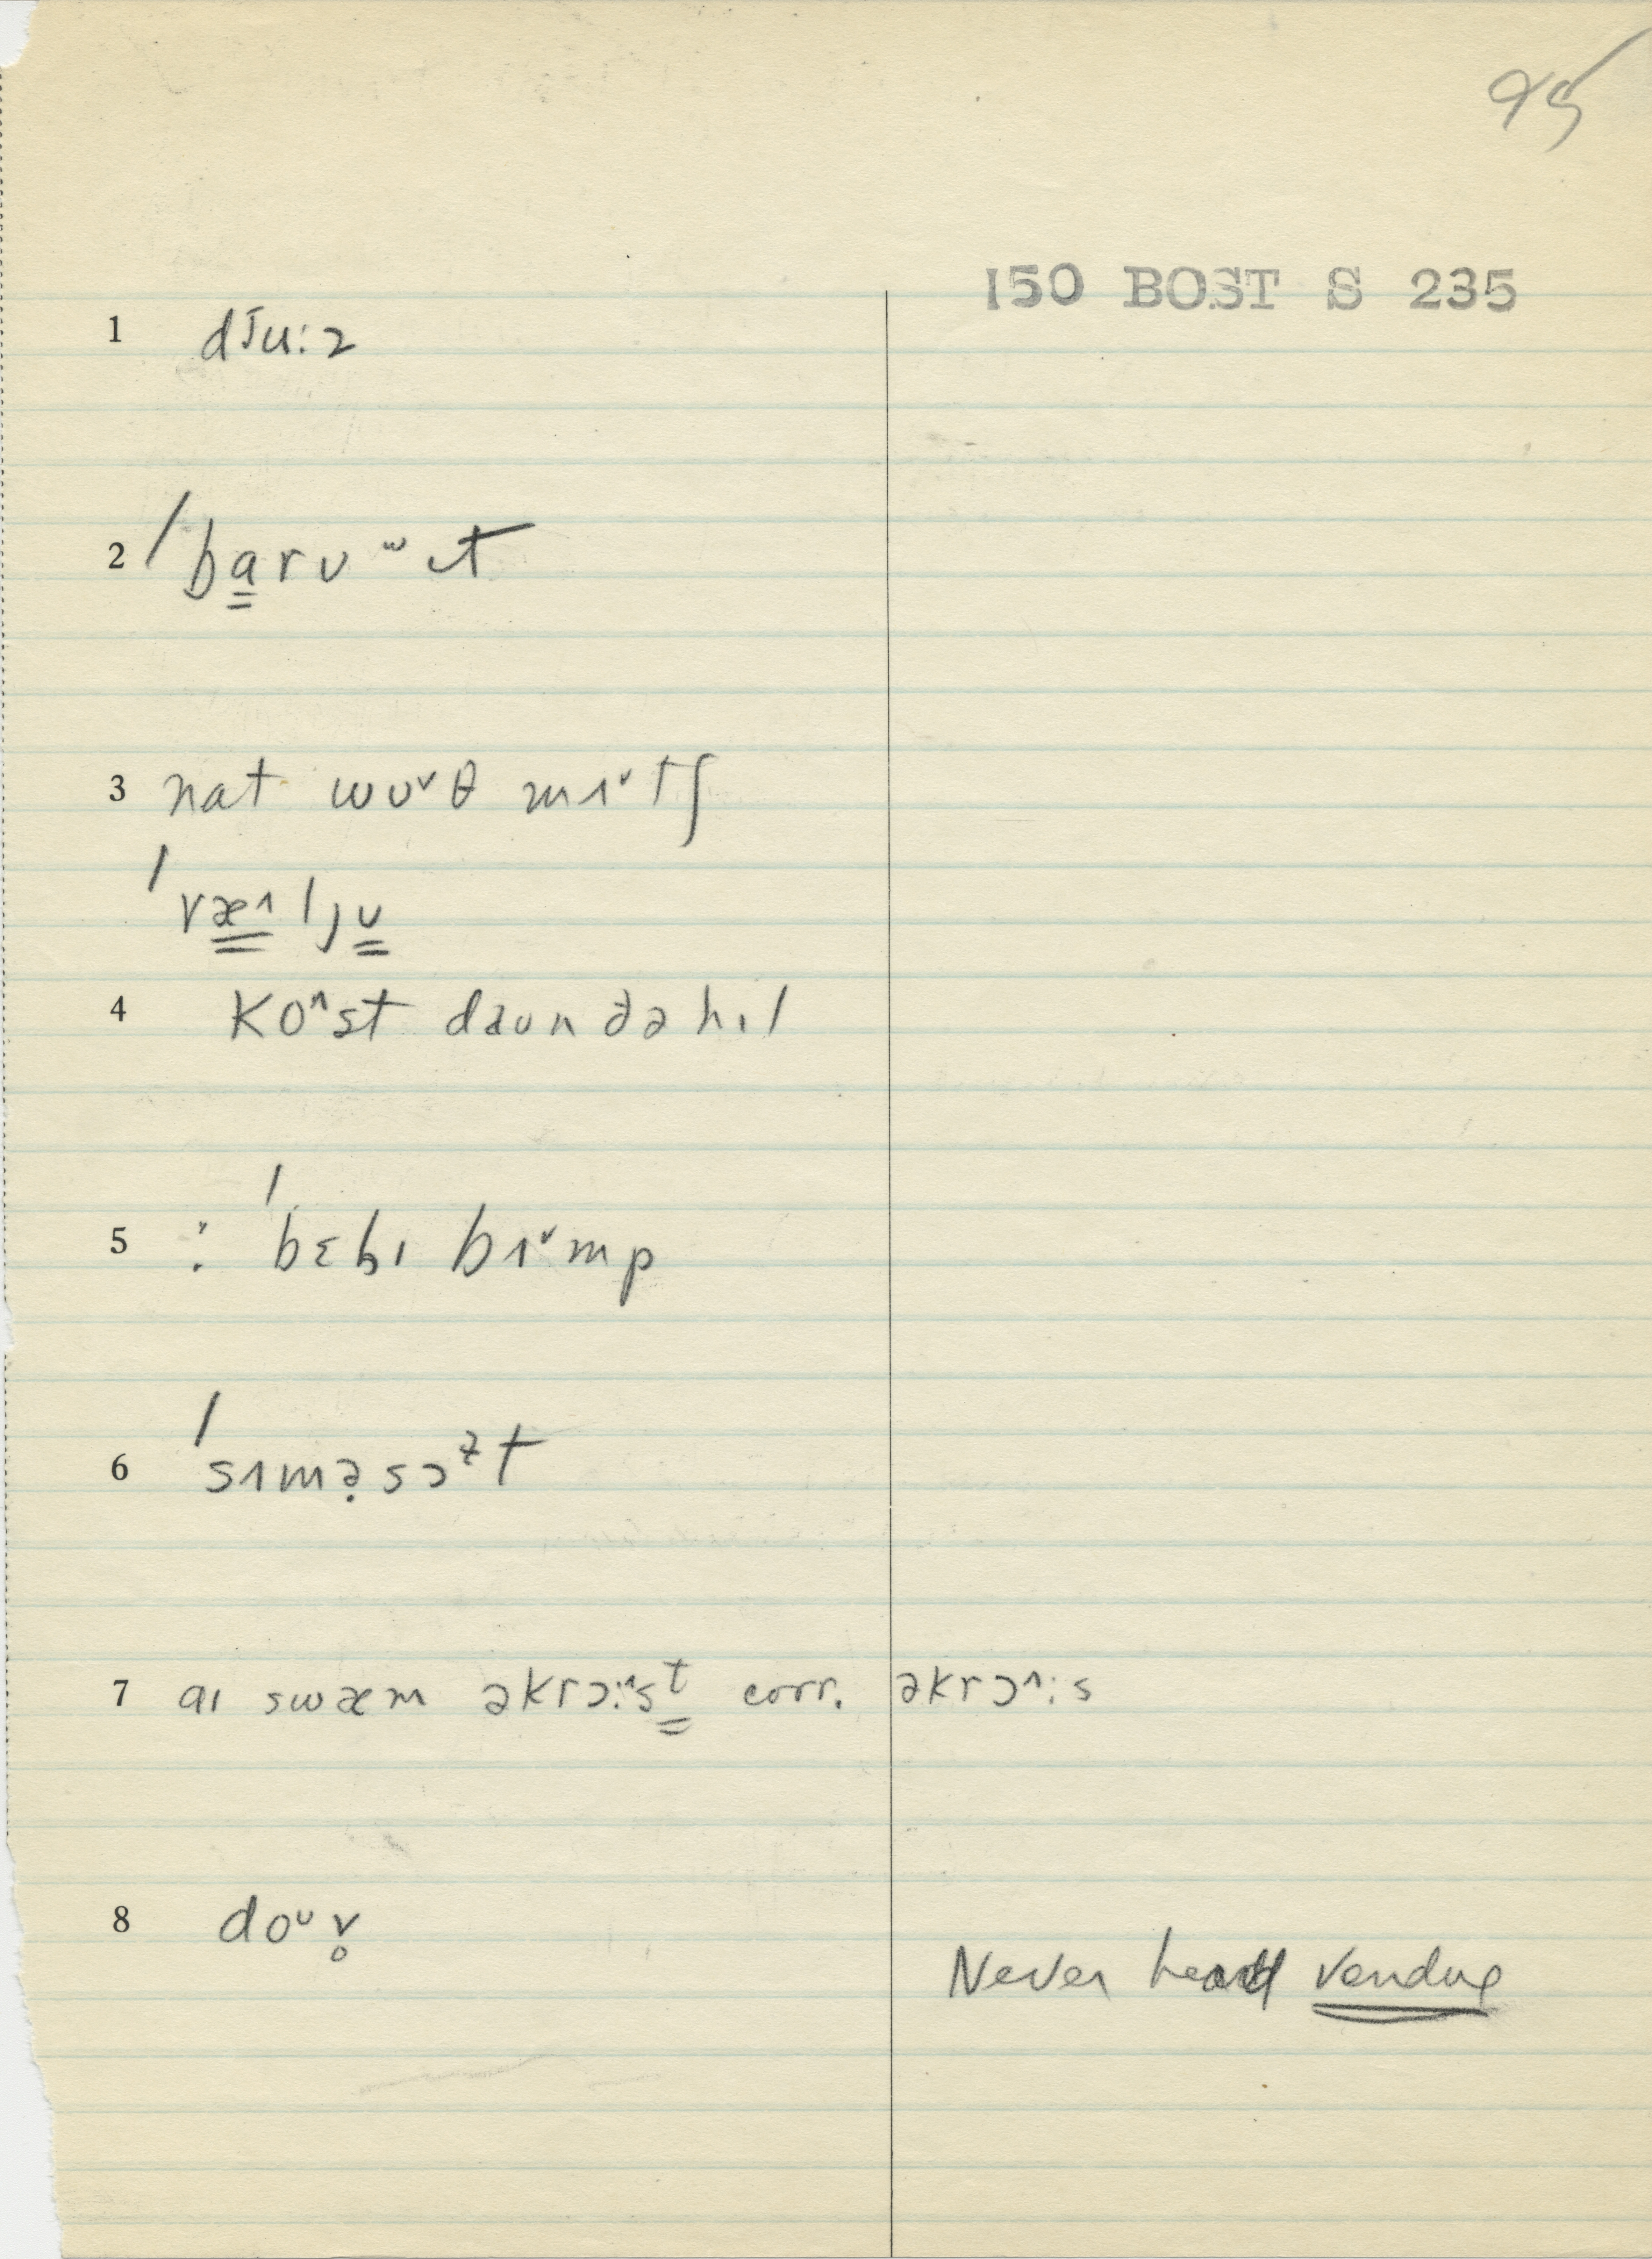 95
150 BOST S 235
1 dɪ̆uːz
2 ˈba̳rʊʷɪt
3 nat wʊ˅θ mɪ˅tʃ
ˈvæ̳^ljʊ̳
4 ko^st daʊn ðə hɪl
5 : ˈbɛbɪ bɪ˅mp
6 ˈsɪmə̣sɔᵊt
7 aɪ swæm əkrɔː^sᵗ̳ corr. əkrɔ^ːs
8 doᶷv̥
Never heard vendue